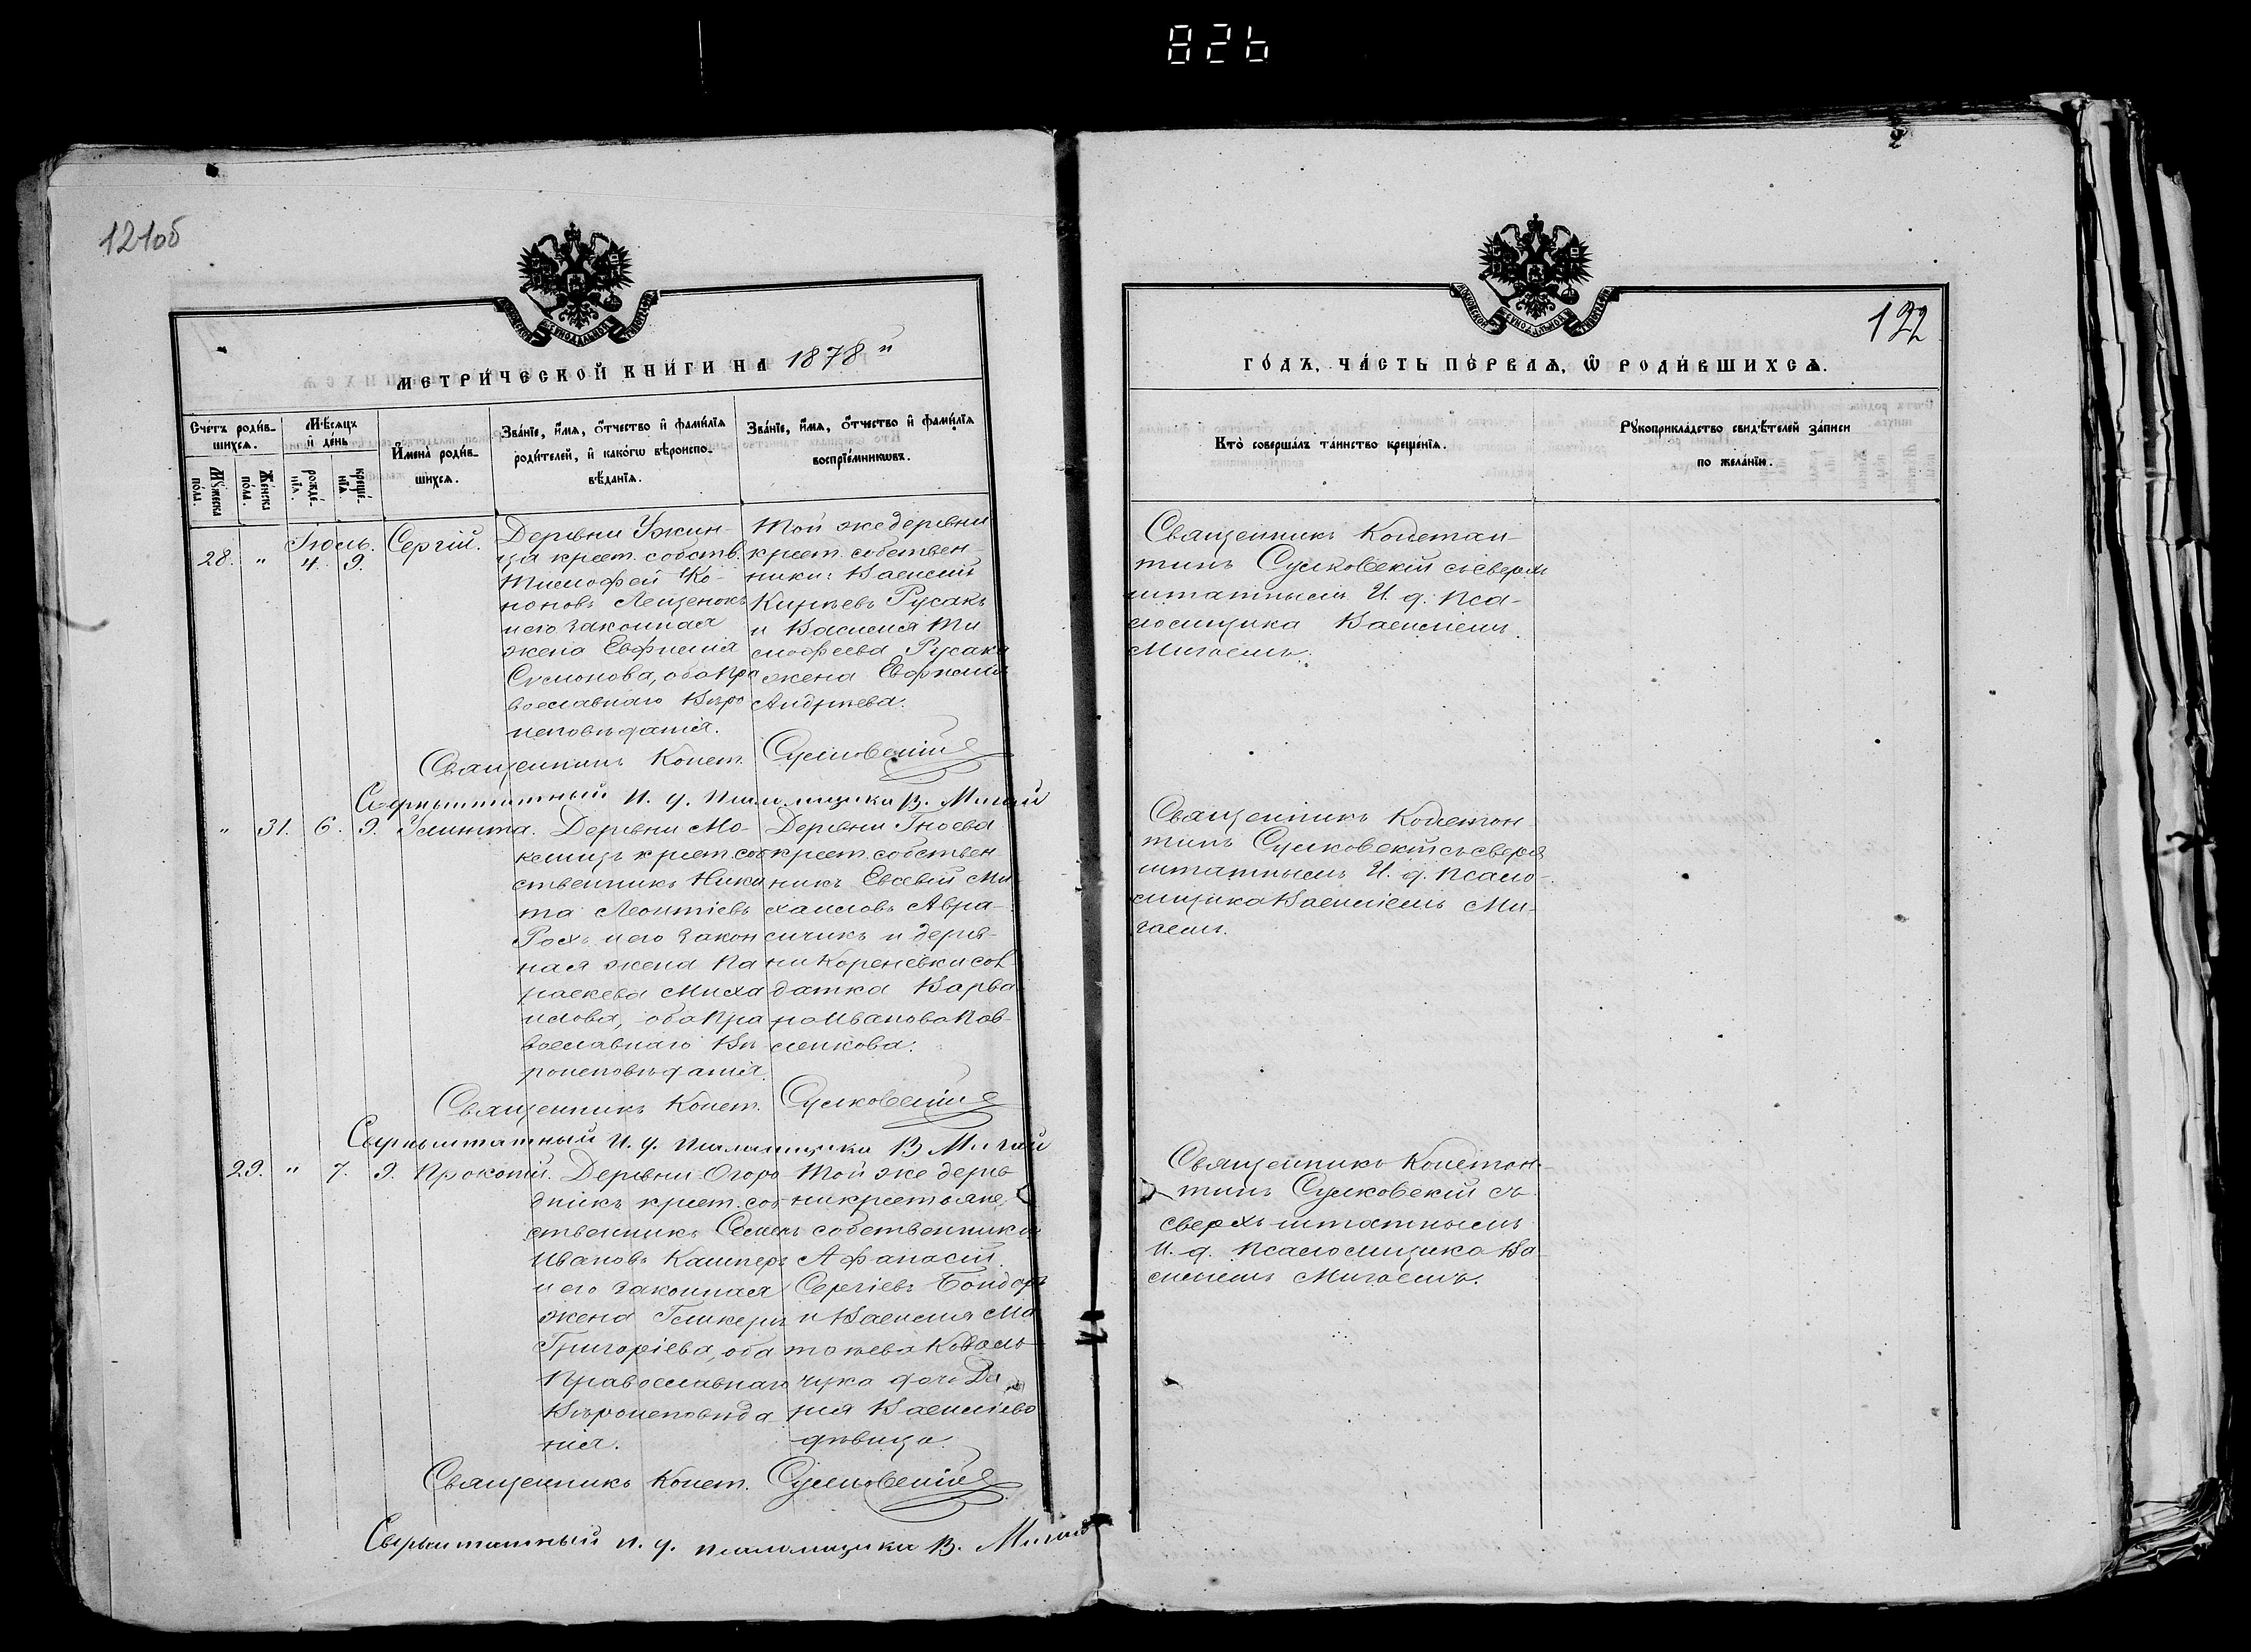 826
121об
МЕТРИ́ЧЕСКОЙ КНИ́ГИ НА 1878 й
Сче́тъ роди́в-
шихсѧ.
Мѣ́сѧцъ
и де́нь
И҆мена̀ роди́в-
шихсѧ.
Зва́нїе, и҆́мѧ, ѻ҆́тчество и҆ фамилїѧ
роди́телей, и҆ како́гѡ вѣроиспо-
вѣ́данїѧ.
Зва́нїе, и҆́мѧ, ѻ҆́тчество и҆ фамилїѧ
воспрїе́мникѡвъ.
Мꙋ́жеска
по́ла.
Же́нска
по́ла.
рожде́-
нїѧ.
креще́-
нїѧ
28. " Іюль. 4. 9. Сергій.
Деревни Ужин-
ца крест. собств.
Тимофей Ко-
новъ Лещенокъ
и его законная
жена Евфимія
Симонова, оба пра
вославнаго вѣро
исповѣданія.
Той же деревни
крест. собствен-
ники: Василій
Кирѣевъ Русакъ
и Василія Ти
мофеева Русака
жена Евфимія
Андреева.
Священникъ Конст. Сулковскій
Сверхштатный И. д. псаломщика В. Мигай
" 31. 6. 9. Улитта.
Деревни Мо-
крест. соб
ственникъ Ники
та Леонтіевъ
и его закон
ная жена Па
раскева Миха
илова, оба пра
вославнаго вѣ
роисповѣданія.
Деревни Гноева
крест. собствен-
никъ Евсевій Ми
хаиловъ Авра-
и дерев-
ни Кореневки сол
датка Варва
ра Иванова Пав-
люкова.
Священникъ Конст. Сулковскій
Сверхштатный И. д. псаломщика В. Мигай
29. " 7. 9. Прокопій.
Деревни Огоро
дникъ крест. соб
ственникъ Семенъ
Ивановъ Кашперъ
и его законная
жена Гликерія
Григоріева, оба
православнаго
вѣроисповѣда
нія.
Той же дерев
ни крестьяне
собственники
Афанасій
Сергіевъ Бондарь
и Василія Ма
тѳѣева Коваль
чука дочь Да
рія Васильева
дѣвица.
Священникъ Конст. Сулковскій
Сверхштатный И. д. псаломщика В. Мигай
122
ГО́ДЪ, ЧА́СТЬ ПЕ́РВАѦ, Ѡ҆ РОДИ́ВШИХСѦ.
Кто̀ соверша́лъ та́инство креще́нїѧ.
Рꙋкоприкла́дство свидѣ́телей за́писи
по жела́нїю.
Священникъ Констан-
тинъ Сулковскій съ сверх
штатнымъ И. д. Пса-
ломщика Василіемъ
Мигаемъ.
Священникъ Констан
тинъ Сулковскій съ сверх
штатнымъ И. д. Псало-
мщика Василіемъ Ми-
гаемъ.
Священникъ Констан-
тинъ Сулковскій съ
сверхъ штатнымъ
И. д. Псаломщика Ва
силіемъ Мигаемъ.